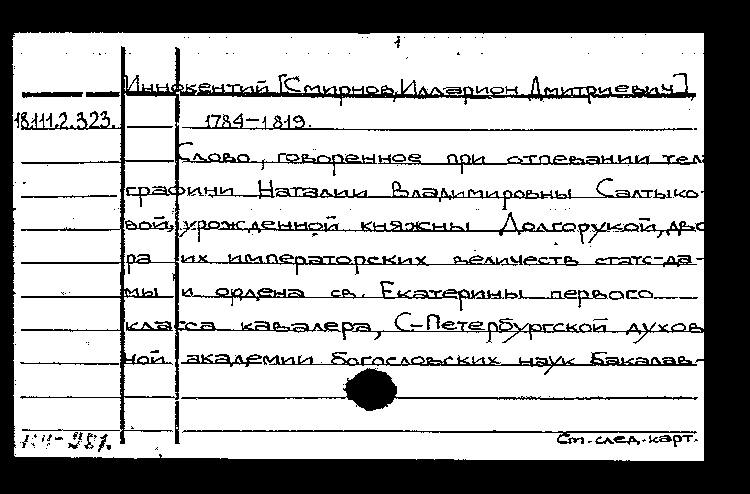 1
Иннокентий [Смирнов, Илларион Дмитриевич],
18.111.2.323. 1784-1819.
Слово, говоренное при отпевании тел
графини Наталии Владимировны Салтыко-
вой, урожденной княжны Долгорукой, дво
ра их императорских величеств статс-да-
мы и ордена св. Екатерины первого
класса кавалера, С-Петербургской духов
ной академии богословских наук бакалав-
См. след. карт.